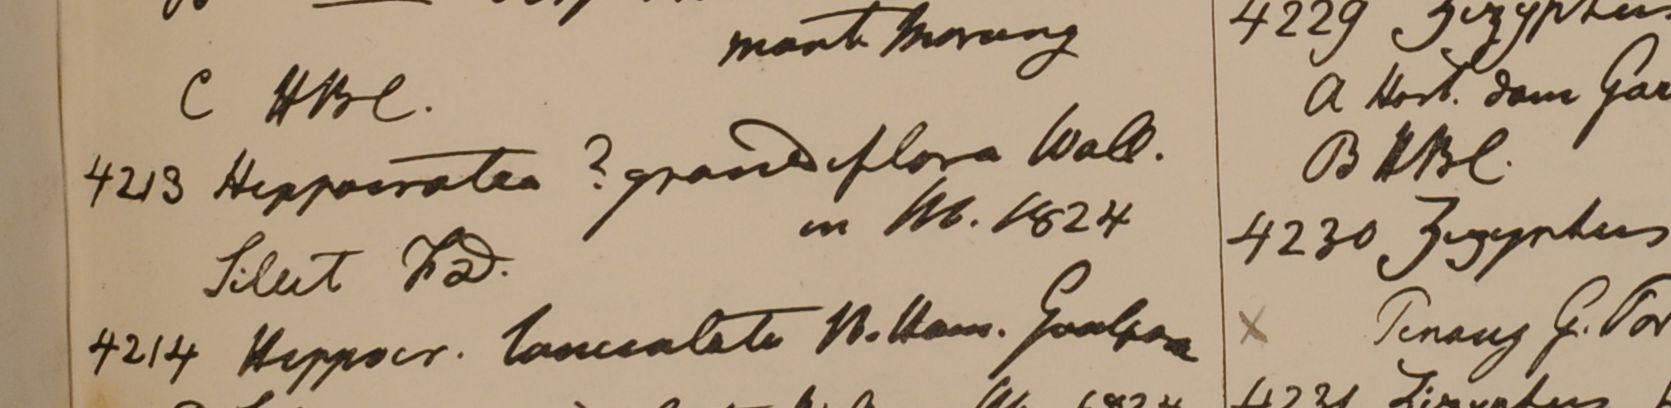 mont Morung
C HBC.
4213 Hippocratea ? grandiflora Wall.
in Hb. 1824
Silet F.D.
4214 Hippocr. lanceolata B. Ham. Goalpara
4229 Zizyphus
A Hort. dom Gar
B HBC.
4230 Zizyphus
x Penang G. Por
4231 Zizyphus